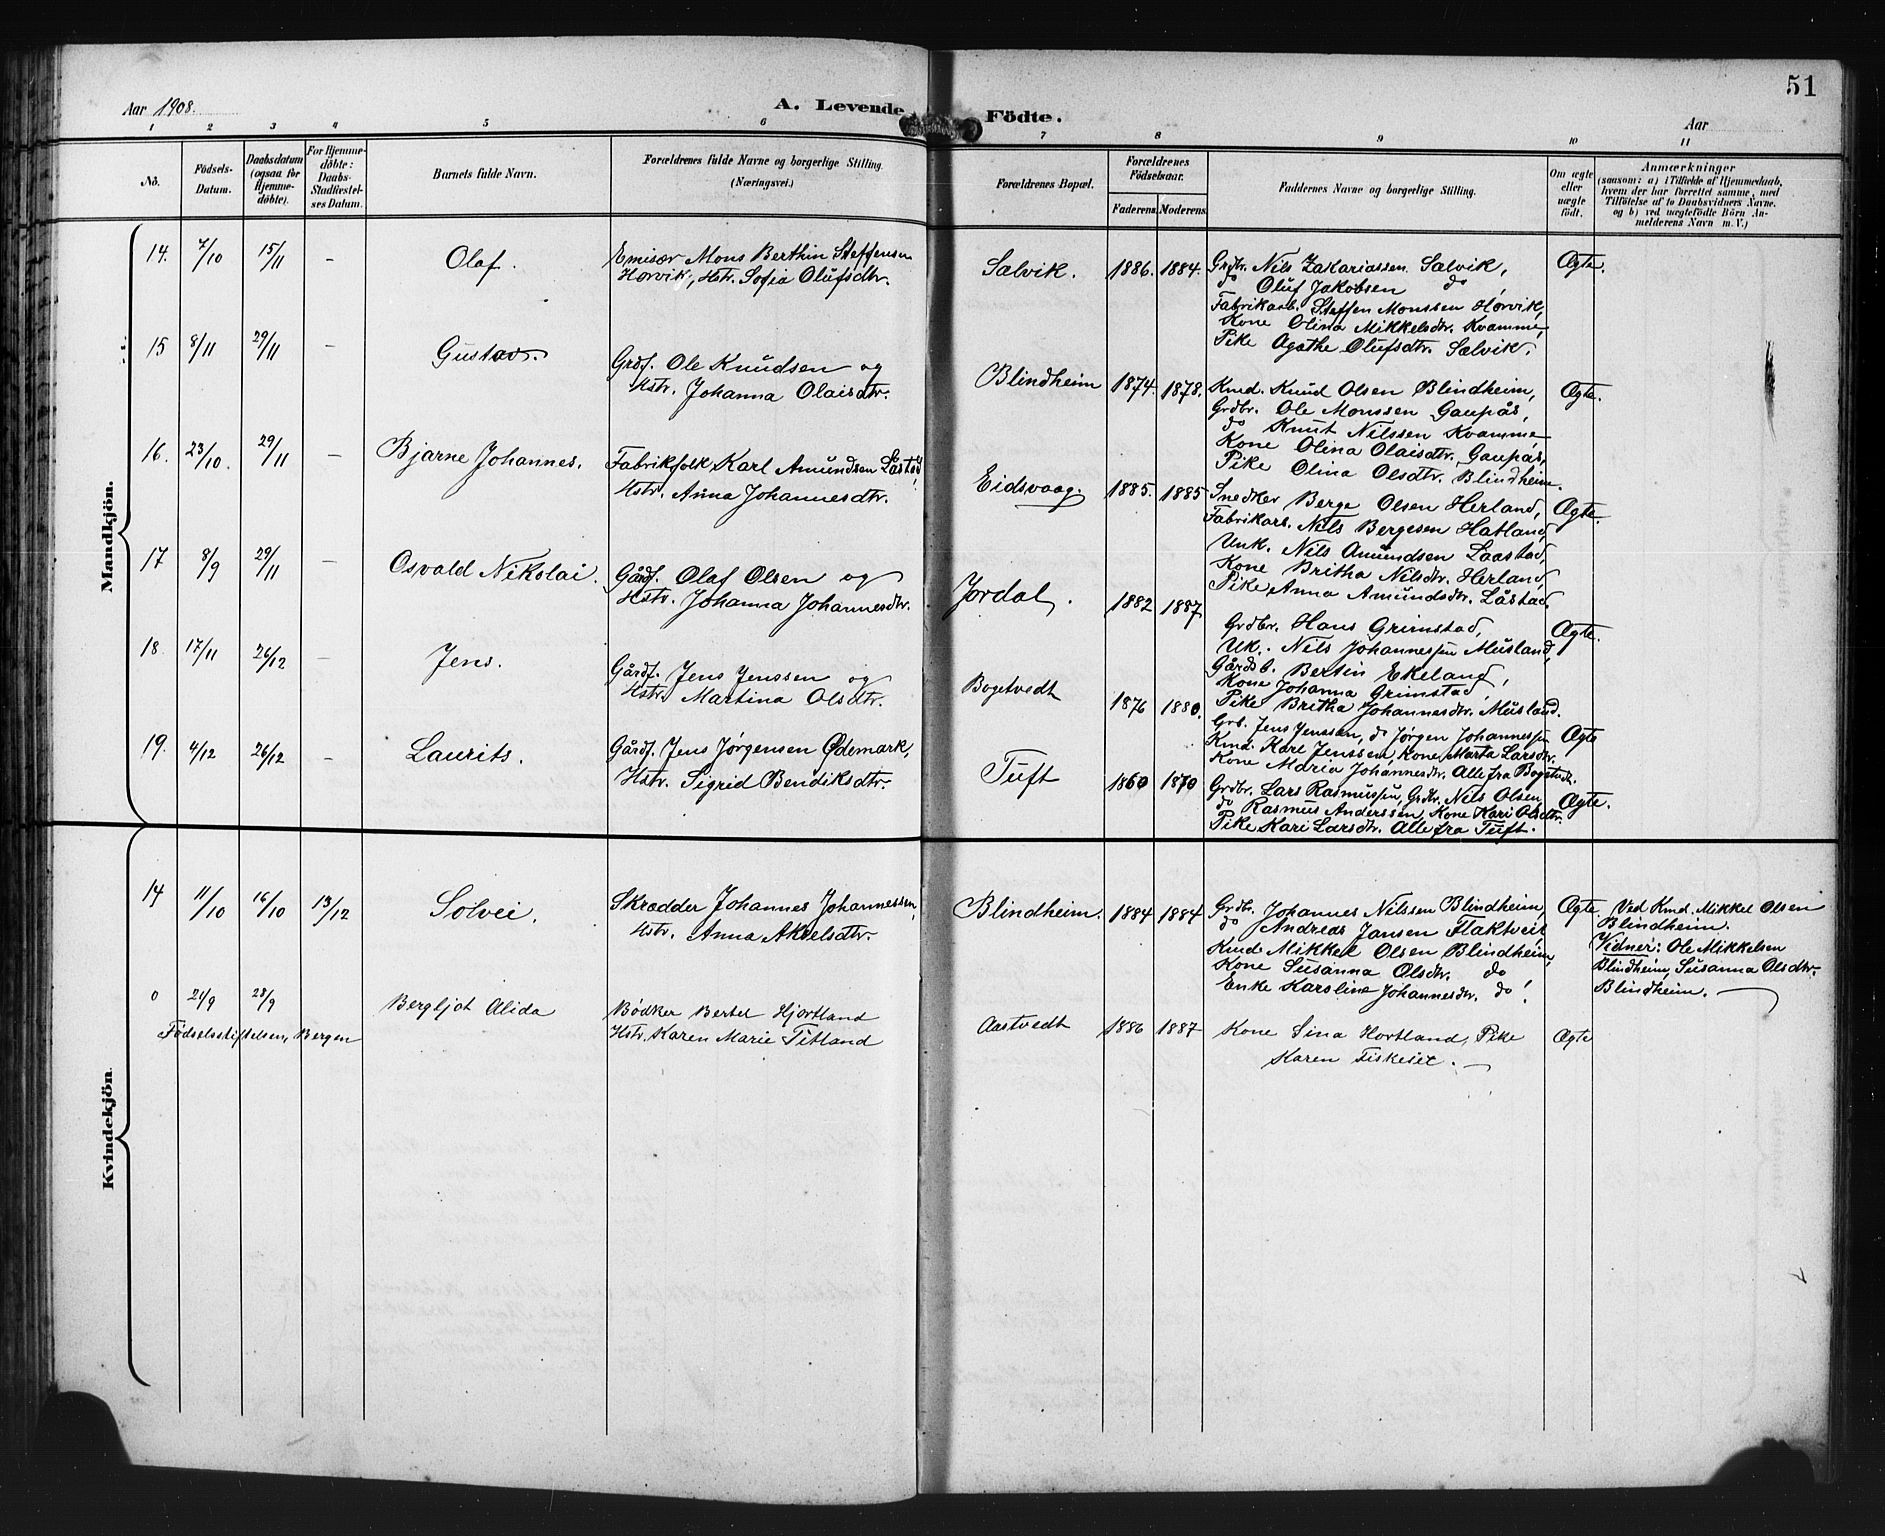 51
Aar 1908.
A. Levende Födte.
Aar
1 2 3 4 5 6 7 8 9 10 11
No.
Födsels-Datum.
Daabsdatum (ogsaa for Hjemme-döbte).
For Hjemme-döbte: Daabs-Stadfæstel-ses Datum.
Barnets fulde Navn.
Forældrenes fulde Navne og borgerlige Stilling. (Næringsvei.)
Forældrenes Bopæl.
Forældrenes Födselsaar.
Faderens. Moderens.
Faddernes Navne og borgerlige Stilling.
Om ægte eller uægte født.
Anmærkninger
(saasom: a) i Tilfælde af Hjemmedaab, hvem der har forrettet samme, med Tilföielse af to Daabsvidners Navne, og b) ved uægtefödte Börn An-melderens Navn m. V.)
Mandkjön.
14. 7/10 15/11 – Olaf.
Emisær Mons Berthin Steffensen
Horvik, Hstr. Sofia Olufsdtr.
Salvik. 1886. 1884.
Grdbr. Nils Zakariassen Salvik,
do Oluf Jakobsen do
Fabrikarb. Steffen Monssen Horvik,
Kone Olina Mikkelsdtr. Kvamme,
Pike Agathe Olufsdtr. Salvik.
Ægte.
15 8/11 29/11 – Gustav.
Grdf. Ole Knudsen og
Hstr. Johanna Olaisdtr.
Blindheim 1874. 1878.
Kmd. Knud Olsen Blindheim,
Grdbr. Ole Monssen Gaupås,
do Knut Nilssen Kvamme
Kone Olina Olaisdtr. Gaupås,
Pike Olina Olsdtr. Blindheim.
Ægte.
16. 23/10. 29/11 – Bjarne Johannes.
Fabrikfolk Karl Amundsen Låstad,
Hstr. Anna Johannesdtr.
Eidsvaag. 1885. 1885
Snedker Berge Olsen Herland,
Fabrikarb. Nils Bergesen Hatland,
Unk. Nils Amundsen Laastad,
Kone Britha Nilsdtr. Herland,
Pike Anna Amundsdtr. Låstad.
Ægte.
17 8/9 29/11 – Osvald Nikolai.
Gårdf. Olaf Olsen og
Hstr. Johanna Johannesdtr.
Jordal. 1882 1887
Grdbr. Hans Grimstad,
Uk. Nils Johannesen Musland,
Gårdb. Bertin Ekeland,
Kone Johanna Grimstad,
Pike Britha Johannesdtr. Musland.
Ægte.
18. 17/11 26/12 – Jens.
Gårdf. Jens Jenssen og
Hstr. Martina Olsdtr.
Bogetvedt 1876 1880.
Grb. Jens Jenssen, do Jørgen Johannessen
Kmd. Kare Jenssen, Kone Marta Larsdtr.
Kone Maria Johannesdtr. Alle fra Bogetvedt.
Ægte
19. 4/12 26/12 – Laurits.
Gårdf. Jens Jørgensen Ødemark,
Hstr. Sigrid Bendiksdtr.
Tuft 1860 1870
Grdbr. Lars Rasmussen, Grdbr. Nils Olsen,
do Rasmus Anderssen, Kone Kari Olsdtr.
Pike Kari Larsdtr. Alle fra Tuft.
Ægte.
Kvindekjön.
14 11/10 16/10 13/12 Solvei.
Skrædder Johannes Johannessen,
Hstr. Anna Akselsdtr.
Blindheim. 1884 1884
Grdbr. Johannes Nilssen Blindheim,
do Andreas Jansen Flaktveit
Kmd Mikkel Olsen Blindheim,
Kone Susanna Olsdtr. do
Enke Karoline Johannesdtr. do!
Ægte.
Ved Kmd. Mikkel Olsen
Blindheim.
Vidner: Ole Mikkelsen
Blindheim, Susanna Olsdtr.
Blindheim.
0 21/9 28/9 Bergljot Alida
Födselsstiftelsen, Bergen
Bødker Bertel Hjortland
Hstr. Karen Marie Titland
Aastvedt 1886 1887
Kone Sina Hortland, Pike
Karen Fiskeset.
Ægte